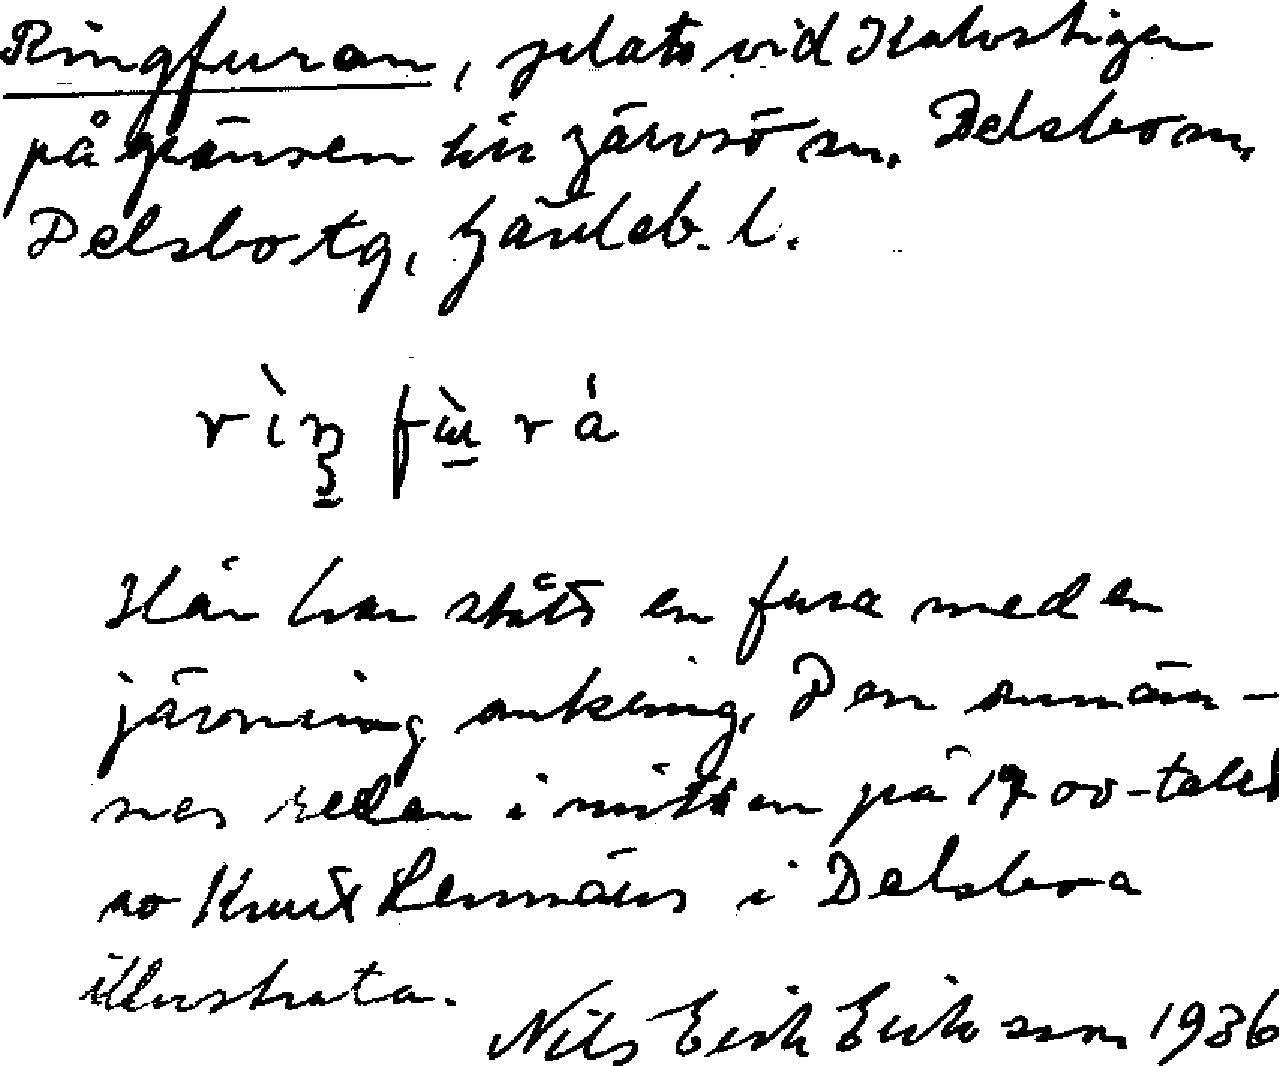 Ringfuran, plats vid Kalvstigen
på gränsen till Järvsö sn. Delsbo sn,
Delsbo tg, Gävleb. l.
Här har stått en fura med en
järnring omkring. Den omnäm-
nes redan i mitten på 1700-talet
av Knut Lenæus i Delsboa
illustrata.
Nils Erik Eriksson 1936